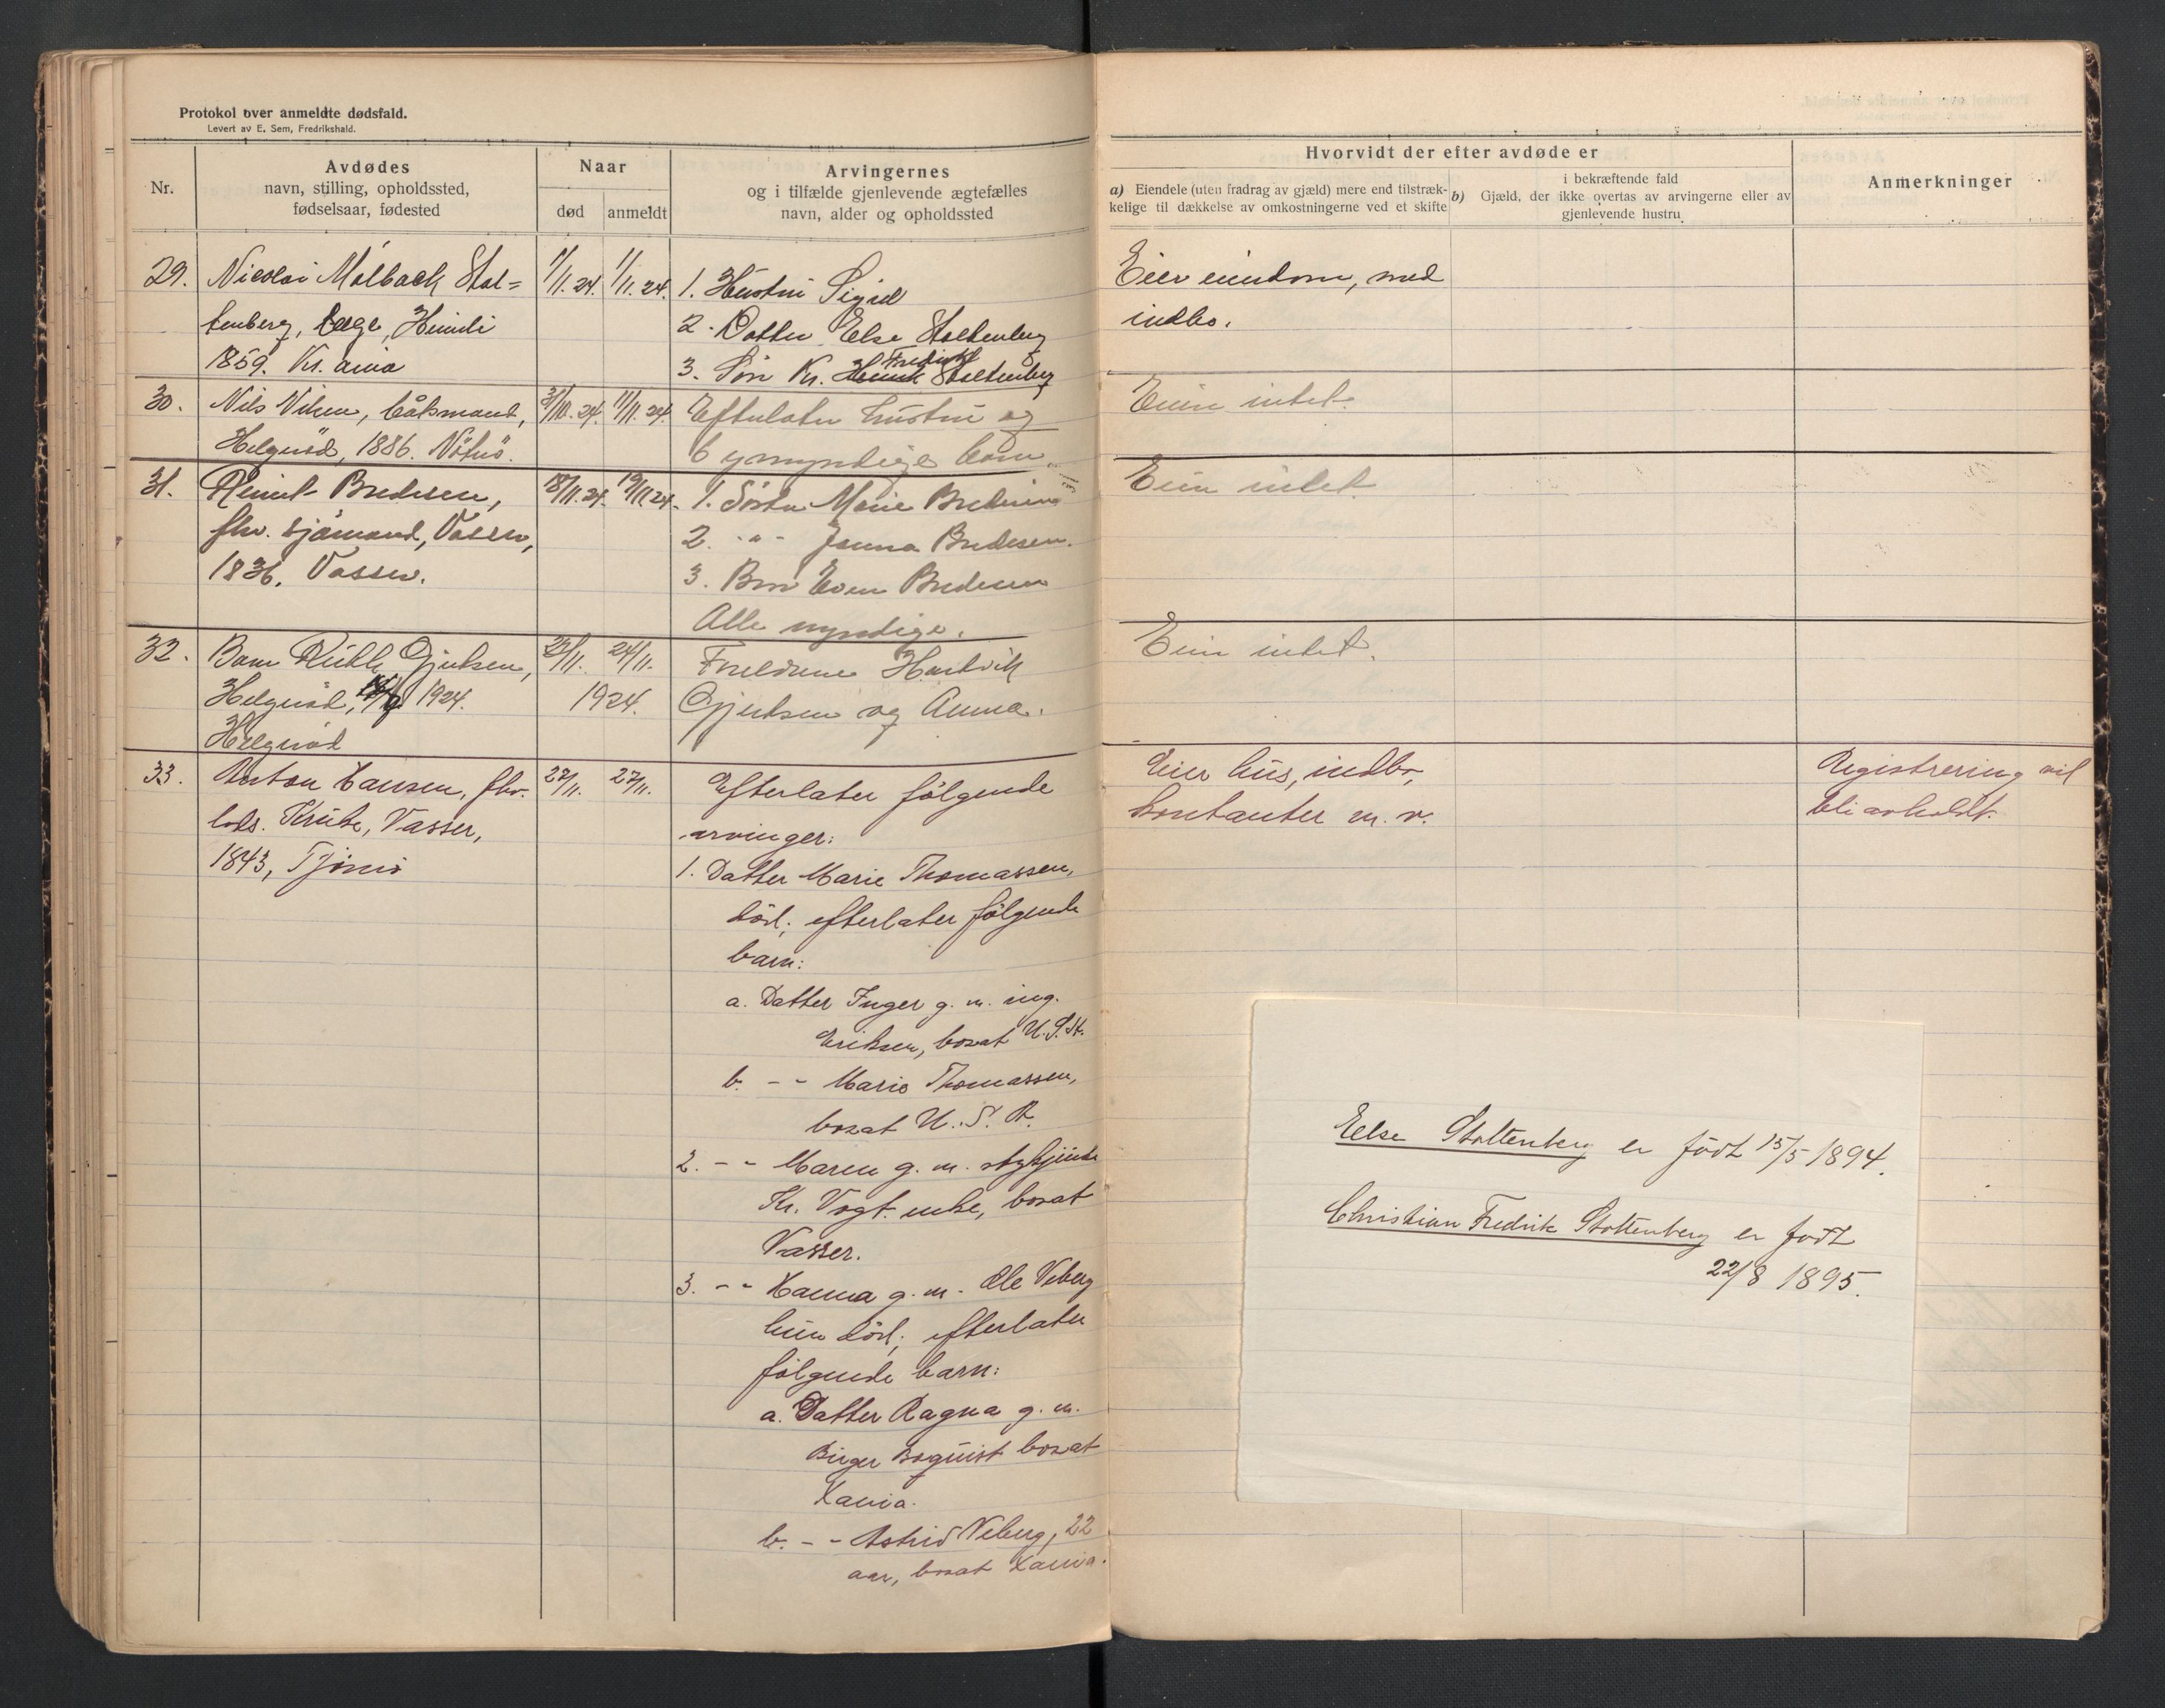 Protokol over anmeldte dødsfald.
Levert av E. Sem, Fredrikshald.
Nr.
Avdødes
navn, stilling, opholdssted,
fødselsaar, fødested
Naar
død
anmeldt
Arvingernes
og i tilfælde gjenlevende ægtefælles
navn, alder og opholdssted
29. Nicolai Malbach Stol-
tenberg, læge, Heimli
1859. Kr.ania
1/11.24. 1/11.24.
1. Hustru Sigrid
2. Datter Else Stoltenberg
3. Søn Kr. Henrik Fredrik Stoltenberg
30. Nils Nilsen, båtsmand,
Helgerød, 1886. Nøtterø.
31/10.24. 11/11.24.
Efterlater hustru og
6 umyndige barn.
31. Bredesen,
fhv. sjømand, Vasser,
1836. Vasser.
18/11.24. 19/11.24.
1. Søster Marie Bredesen
2. -"- Janna Bredesen.
3. Bror Even Bredesen
Alle myndige.
32. Barn Gjertsen,
Helgerød, 1924.
Helgerød
24/11.
1924.
Forældrene Hartvik
Gjertsen og Anna.
33. Anton Hansen, fhv.
lods. Kruke, Vasser,
1843, Tjømø
27/11. 27/11.
Efterlater følgende
arvinger:
1. Datter Marie Thomassen,
død; efterlater følgende
barn:
a. Datter Inger g. m. ing.
Eriksen, bosat U.S.A.
b. - - Marie Thomassen,
bosat U.S.A.
2. - - Maren g. m.
Kr. Vogt. enke, bosat
Vasser.
3. - - Hanna g. m. Ole Veberg
hun død; efterlater
følgende barn:
a. Datter Ragna g. m.
Birger Boquist bosat
Kania.
b. - - Astrid Veberg, 22
aar, bosat Kania.
Hvorvidt der efter avdøde er
a) Eiendele (uten fradrag av gjæld) mere end tilstræk-
kelige til dækkelse av omkostningerne ved et skifte
i bekræftende fald
b) Gjæld, der ikke overtas av arvingerne eller av
gjenlevende hustru
Anmerkninger
Eier eiendom, med
indbo.
Eier intet.
Eier intet.
Eier intet.
Eier hus, indbo,
kontanter m. v.
Registrering vil
bli avholdt.
Else Stoltenberg er født 15/5 1894.
Christian Fredrik Stoltenberg er født
22/8 1895.